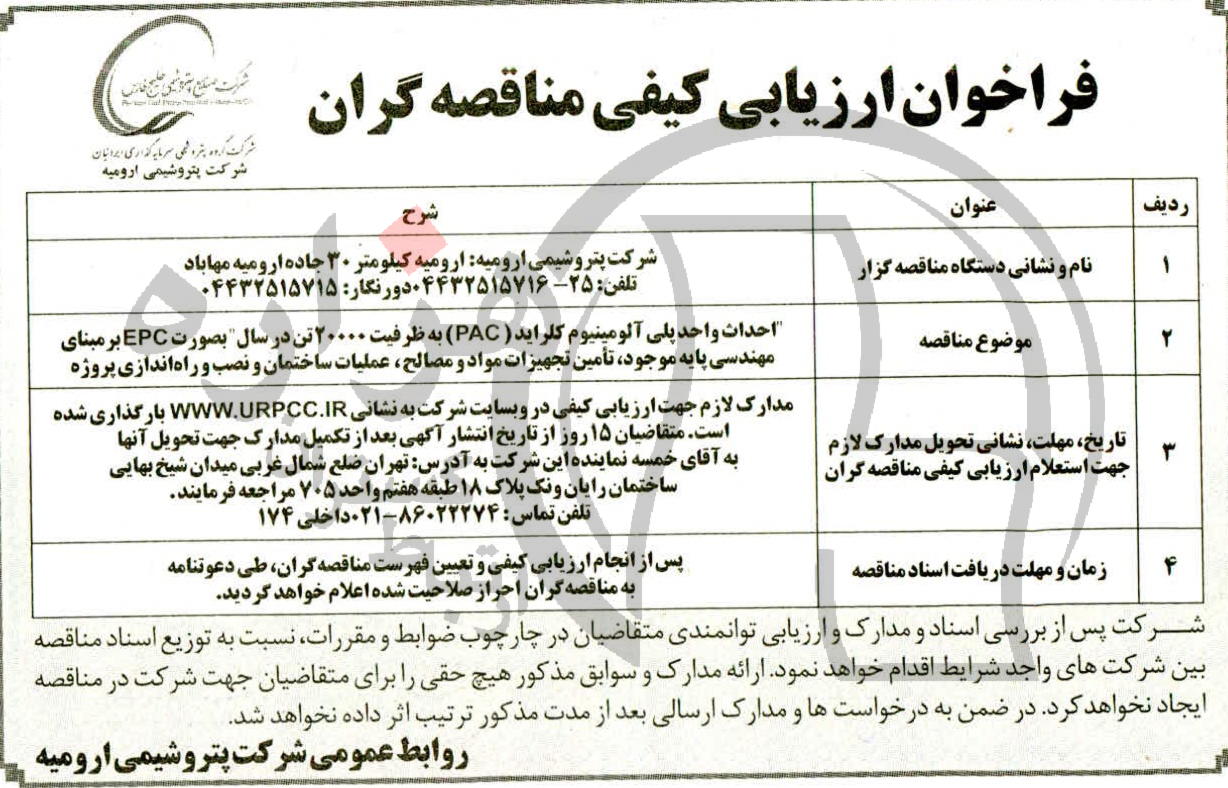 فراخوان ارزیابی کیفی مناقصه گران
شرکت صنایع پتروشیمی خلیج فارس
شرکت گروه پتروشیمی سرمایه گذاری ایرانیان
شرکت پتروشیمی ارومیه
ردیف عنوان شرح
۱ نام و نشانی دستگاه مناقصه گزار
شرکت پتروشیمی ارومیه: ارومیه کیلومتر ۳۰ جاده ارومیه مهاباد
تلفن: ۲۵–۰۴۴۳۲۵۱۵۷۱۶ دورنگار: ۰۴۴۳۲۵۱۵۷۱۵
۲ موضوع مناقصه
"احداث واحد پلی آلومینیوم کلراید (PAC) به ظرفیت ۲۰۰۰۰ تن در سال" بصورت EPC بر مبنای
مهندسی پایه موجود، تأمین تجهیزات مواد و مصالح، عملیات ساختمان و نصب و راه‌اندازی پروژه
۳ تاریخ، مهلت، نشانی تحویل مدارک لازم
جهت استعلام ارزیابی کیفی مناقصه گران
مدارک لازم جهت ارزیابی کیفی در وبسایت شرکت به نشانی WWW.URPCC.IR بارگذاری شده
است. متقاضیان ۱۵ روز از تاریخ انتشار آگهی بعد از تکمیل مدارک جهت تحویل آنها
به آقای خمسه نماینده این شرکت به آدرس: تهران ضلع شمال غربی میدان شیخ بهایی
ساختمان رایان ونک پلاک ۱۸ طبقه هفتم واحد ۷۰۵ مراجعه فرمایند.
تلفن تماس: ۸۶۰۲۲۲۷۴–۰۲۱ داخلی ۱۷۴
۴ زمان و مهلت دریافت اسناد مناقصه
پس از انجام ارزیابی کیفی و تعیین فهرست مناقصه گران، طی دعوتنامه
به مناقصه گران احراز صلاحیت شده اعلام خواهد گردید.
شرکت پس از بررسی اسناد و مدارک و ارزیابی توانمندی متقاضیان در چارچوب ضوابط و مقررات، نسبت به توزیع اسناد مناقصه
بین شرکت های واجد شرایط اقدام خواهد نمود. ارائه مدارک و سوابق مذکور هیچ حقی را برای متقاضیان جهت شرکت در مناقصه
ایجاد نخواهد کرد. در ضمن به درخواست ها و مدارک ارسالی بعد از مدت مذکور ترتیب اثر داده نخواهد شد.
روابط عمومی شرکت پتروشیمی ارومیه